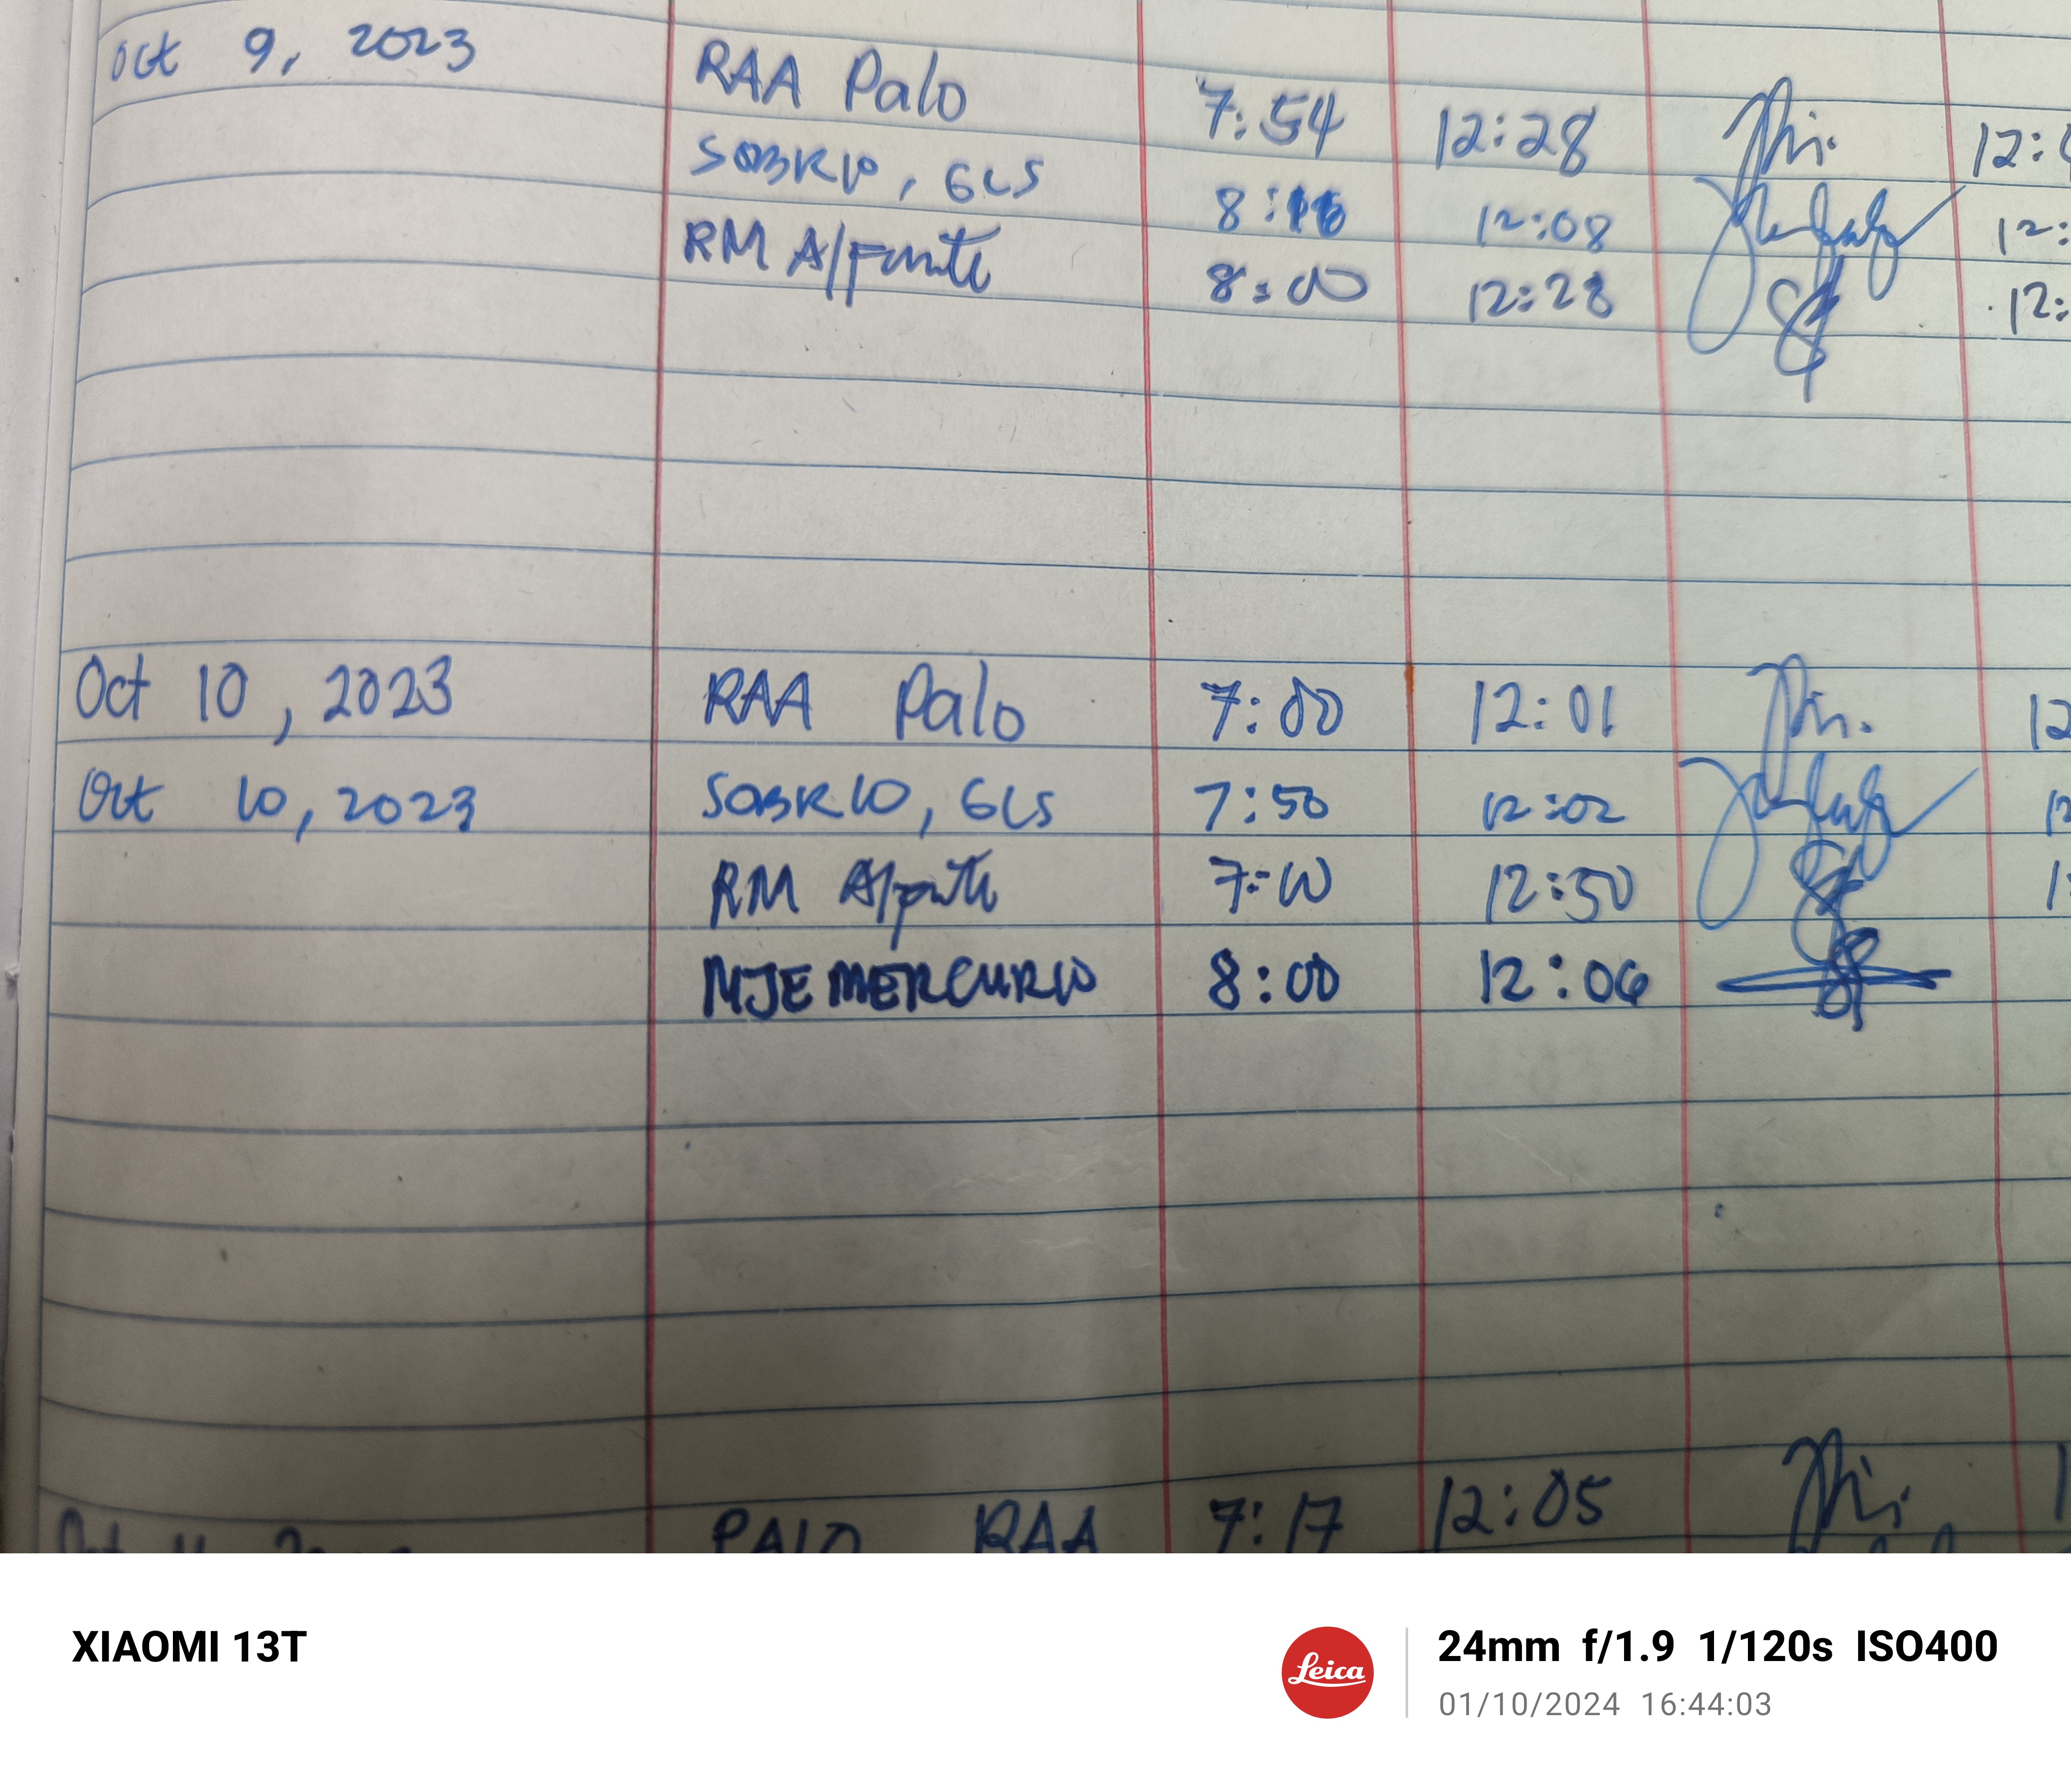 Oct 9, 2023 RAA Palo 7:54 12:28 12:
SOBRIO, GLS 8:16 12:08 12:
RM A/Fonte 8:00 12:28 12:
Oct 10, 2023 RAA Palo 7:00 12:01 12
Oct 10, 2023 SOBRIO, GLS 7:50 12:02 12
RM 7:00 12:50 1
MJE MERCURIO 8:00 12:06
PALO RAA 7:17 12:05 1
XIAOMI 13T
Leica
24mm f/1.9 1/120s ISO400
01/10/2024 16:44:03